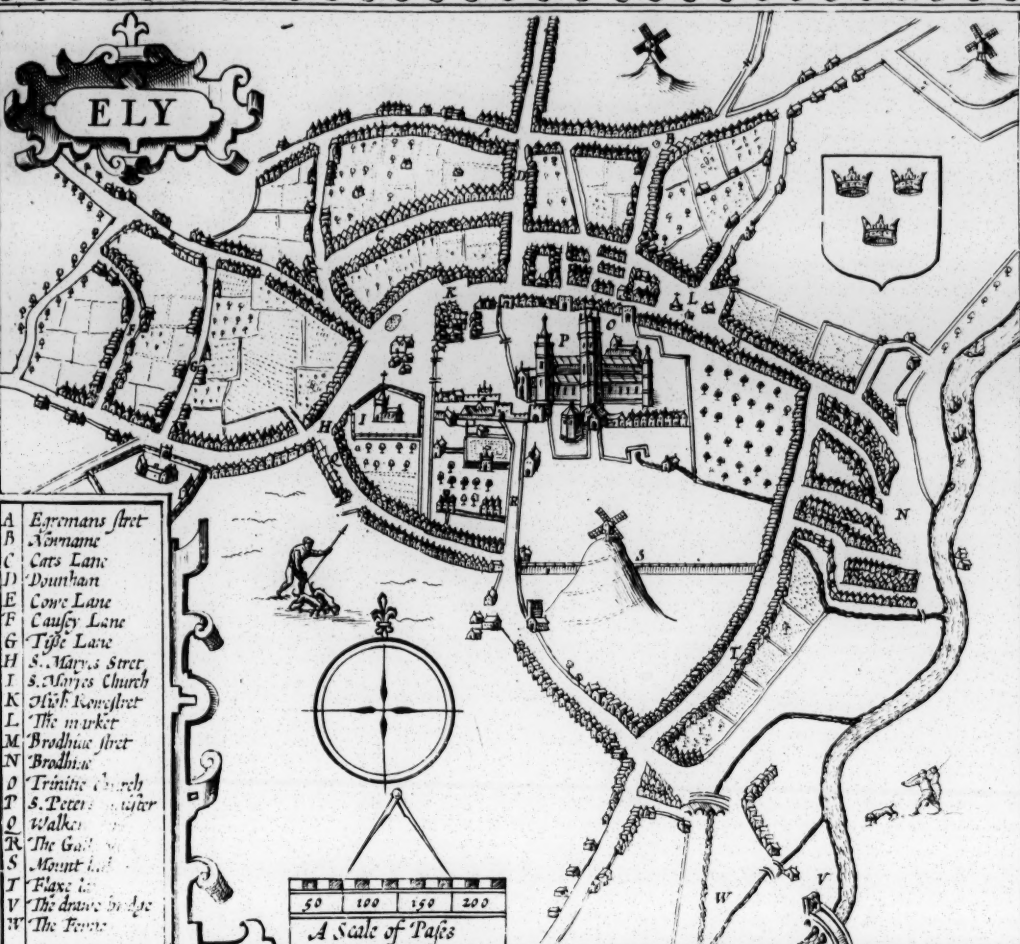 ELY
A Egremans stret
B Newname
C Cats Lane
D Dounham
E Cowe Lane
F Causey Lane
G Tipse Lane
H S. Maryes Stret
I S. Maryes Church
K High Rowestret
L The market
M Brodhiue stret
N Brodhiue
O Trinitie
P S. Peters
Q
R The
S Mount
T Flaxe
V The drawe bridge
W The Fenne
50 100 150 200
A Scale of Pases
A
D
C
K
A L
O
P
F
G
I
H
R
S
N
T
W
V